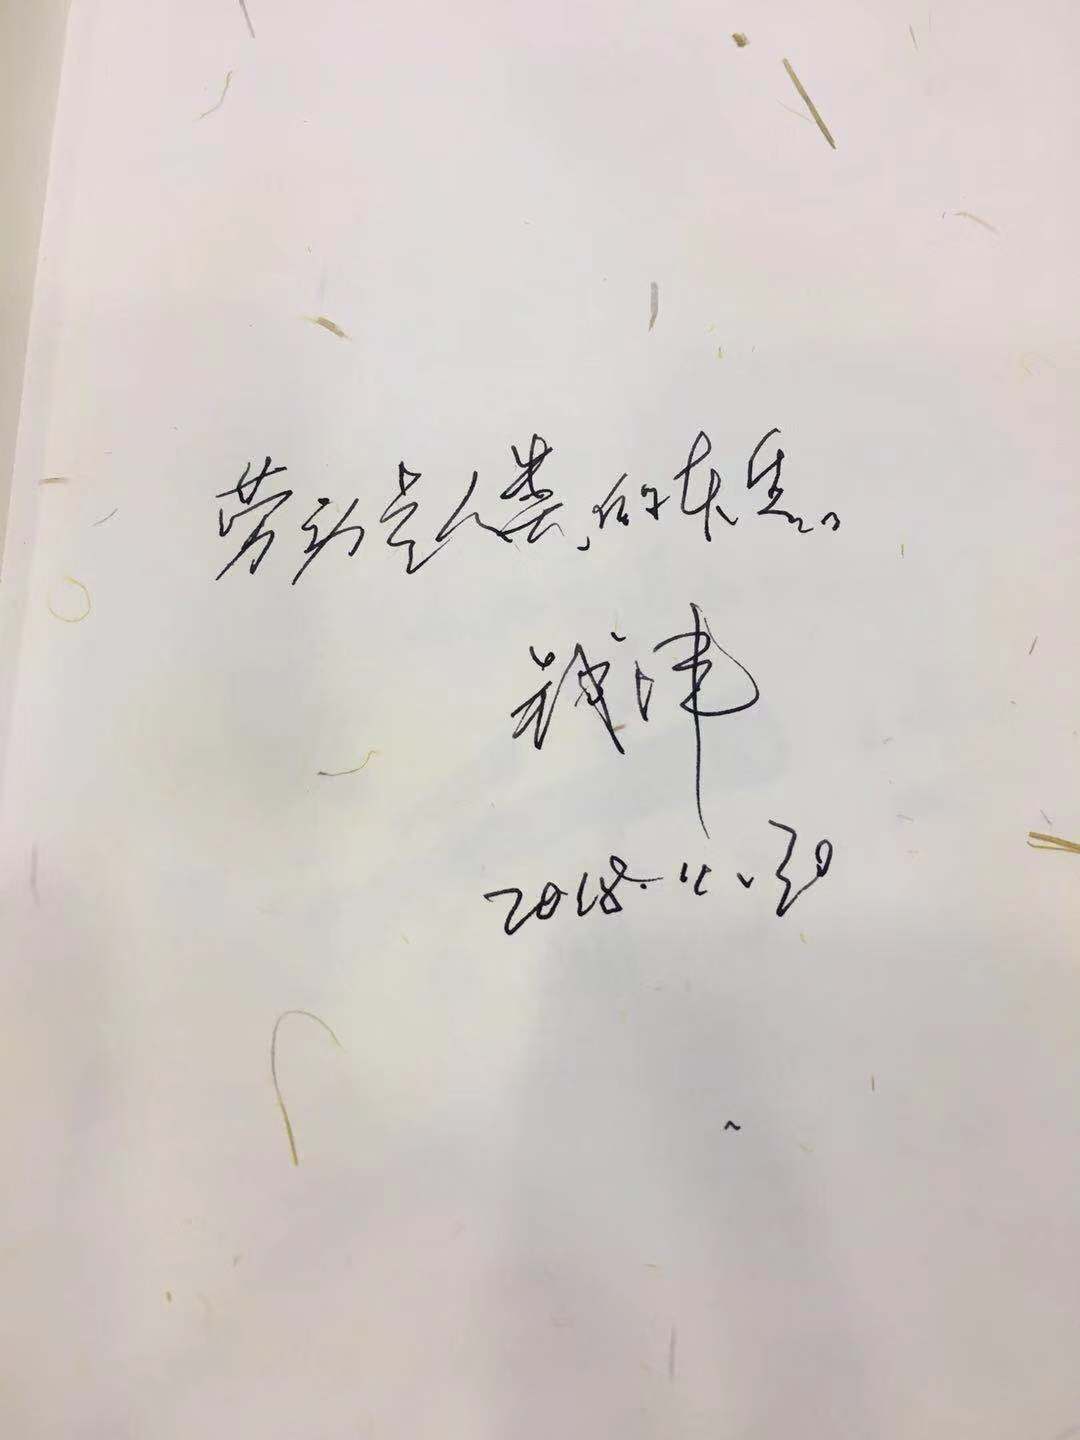 劳动是人类的本质。
钱津
2018.11.30